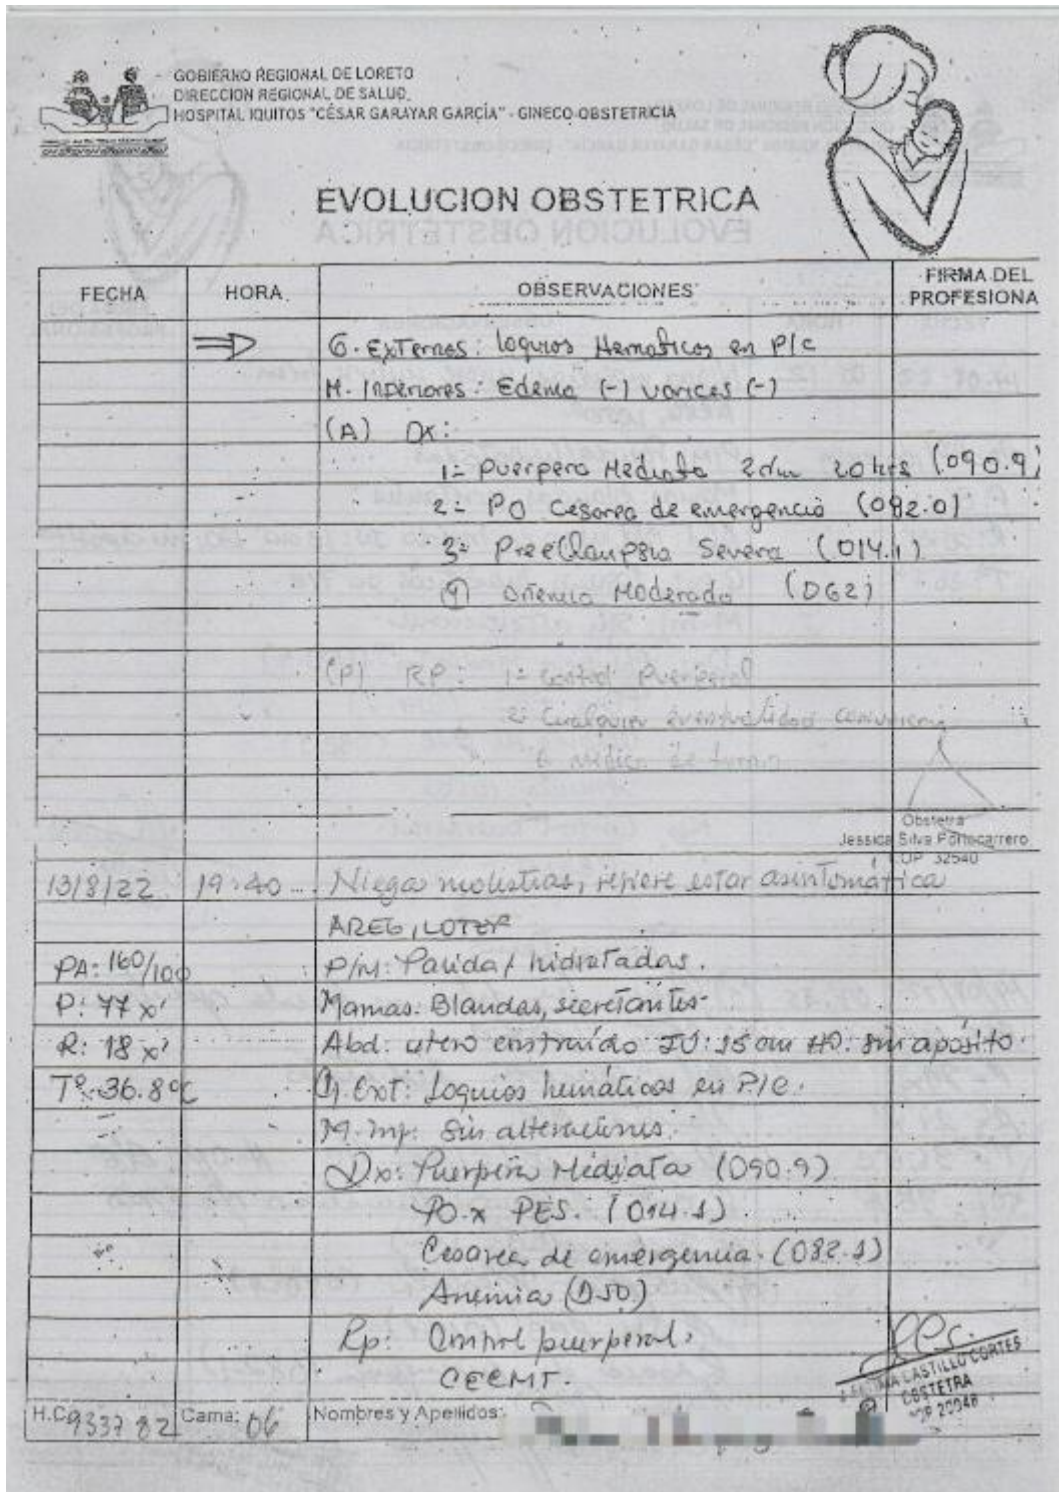 GOBIERNO REGIONAL DE LORETO
DIRECCION REGIONAL DE SALUD
HOSPITAL IQUITOS "CÉSAR GARAYAR GARCÍA" - GINECO-OBSTETRICIA
EVOLUCION OBSTETRICA
FECHA HORA OBSERVACIONES FIRMA DEL PROFESIONA
G. Externos: loquios Hematicos en P/c
M. Inferiores: Edema (-) varices (-)
(A) DX:
1= Puerpera Mediata 20 hrs (090.9)
2= PO Cesarea de emergencia (082.0)
3= PreEclampsia Severa (014.1)
Moderada (D62)
(P) RP: 1= Control Puerperal
2= Cualquier eventualidad
a médico de turno
Obstetra
Jessica Silva Portocarrero
COP 32540
13/8/22 19:40 Niega molestias, refiere estar asintomática
AREG, LOTEP
PA: 160/100 P/M: Palida / hidratadas.
P: 77 x' Mamas: Blandas, secretantes
R: 18 x' Abd: utero contraído AU: 15 cm HO: sin apósito.
Tº: 36.8ºC G. Ext: Loquios hemáticos en P/C.
M. Inf: Sin alteraciones.
Dx: Puerpera Mediata (090.9)
PO x PES. (014.1)
Cesarea de emergencia. (082.1)
Anemia (D50)
Rp: Control puerperal.
CECMT.
CASTILLO CORTES
OBSTETRA
COP 20948
H.C 933782 Cama: 06 Nombres y Apellidos: